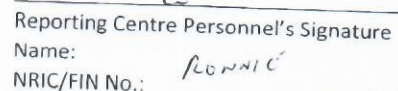 Reporting Centre Personnel's Signature
Name: RONNIE
NRIC/FIN No.: